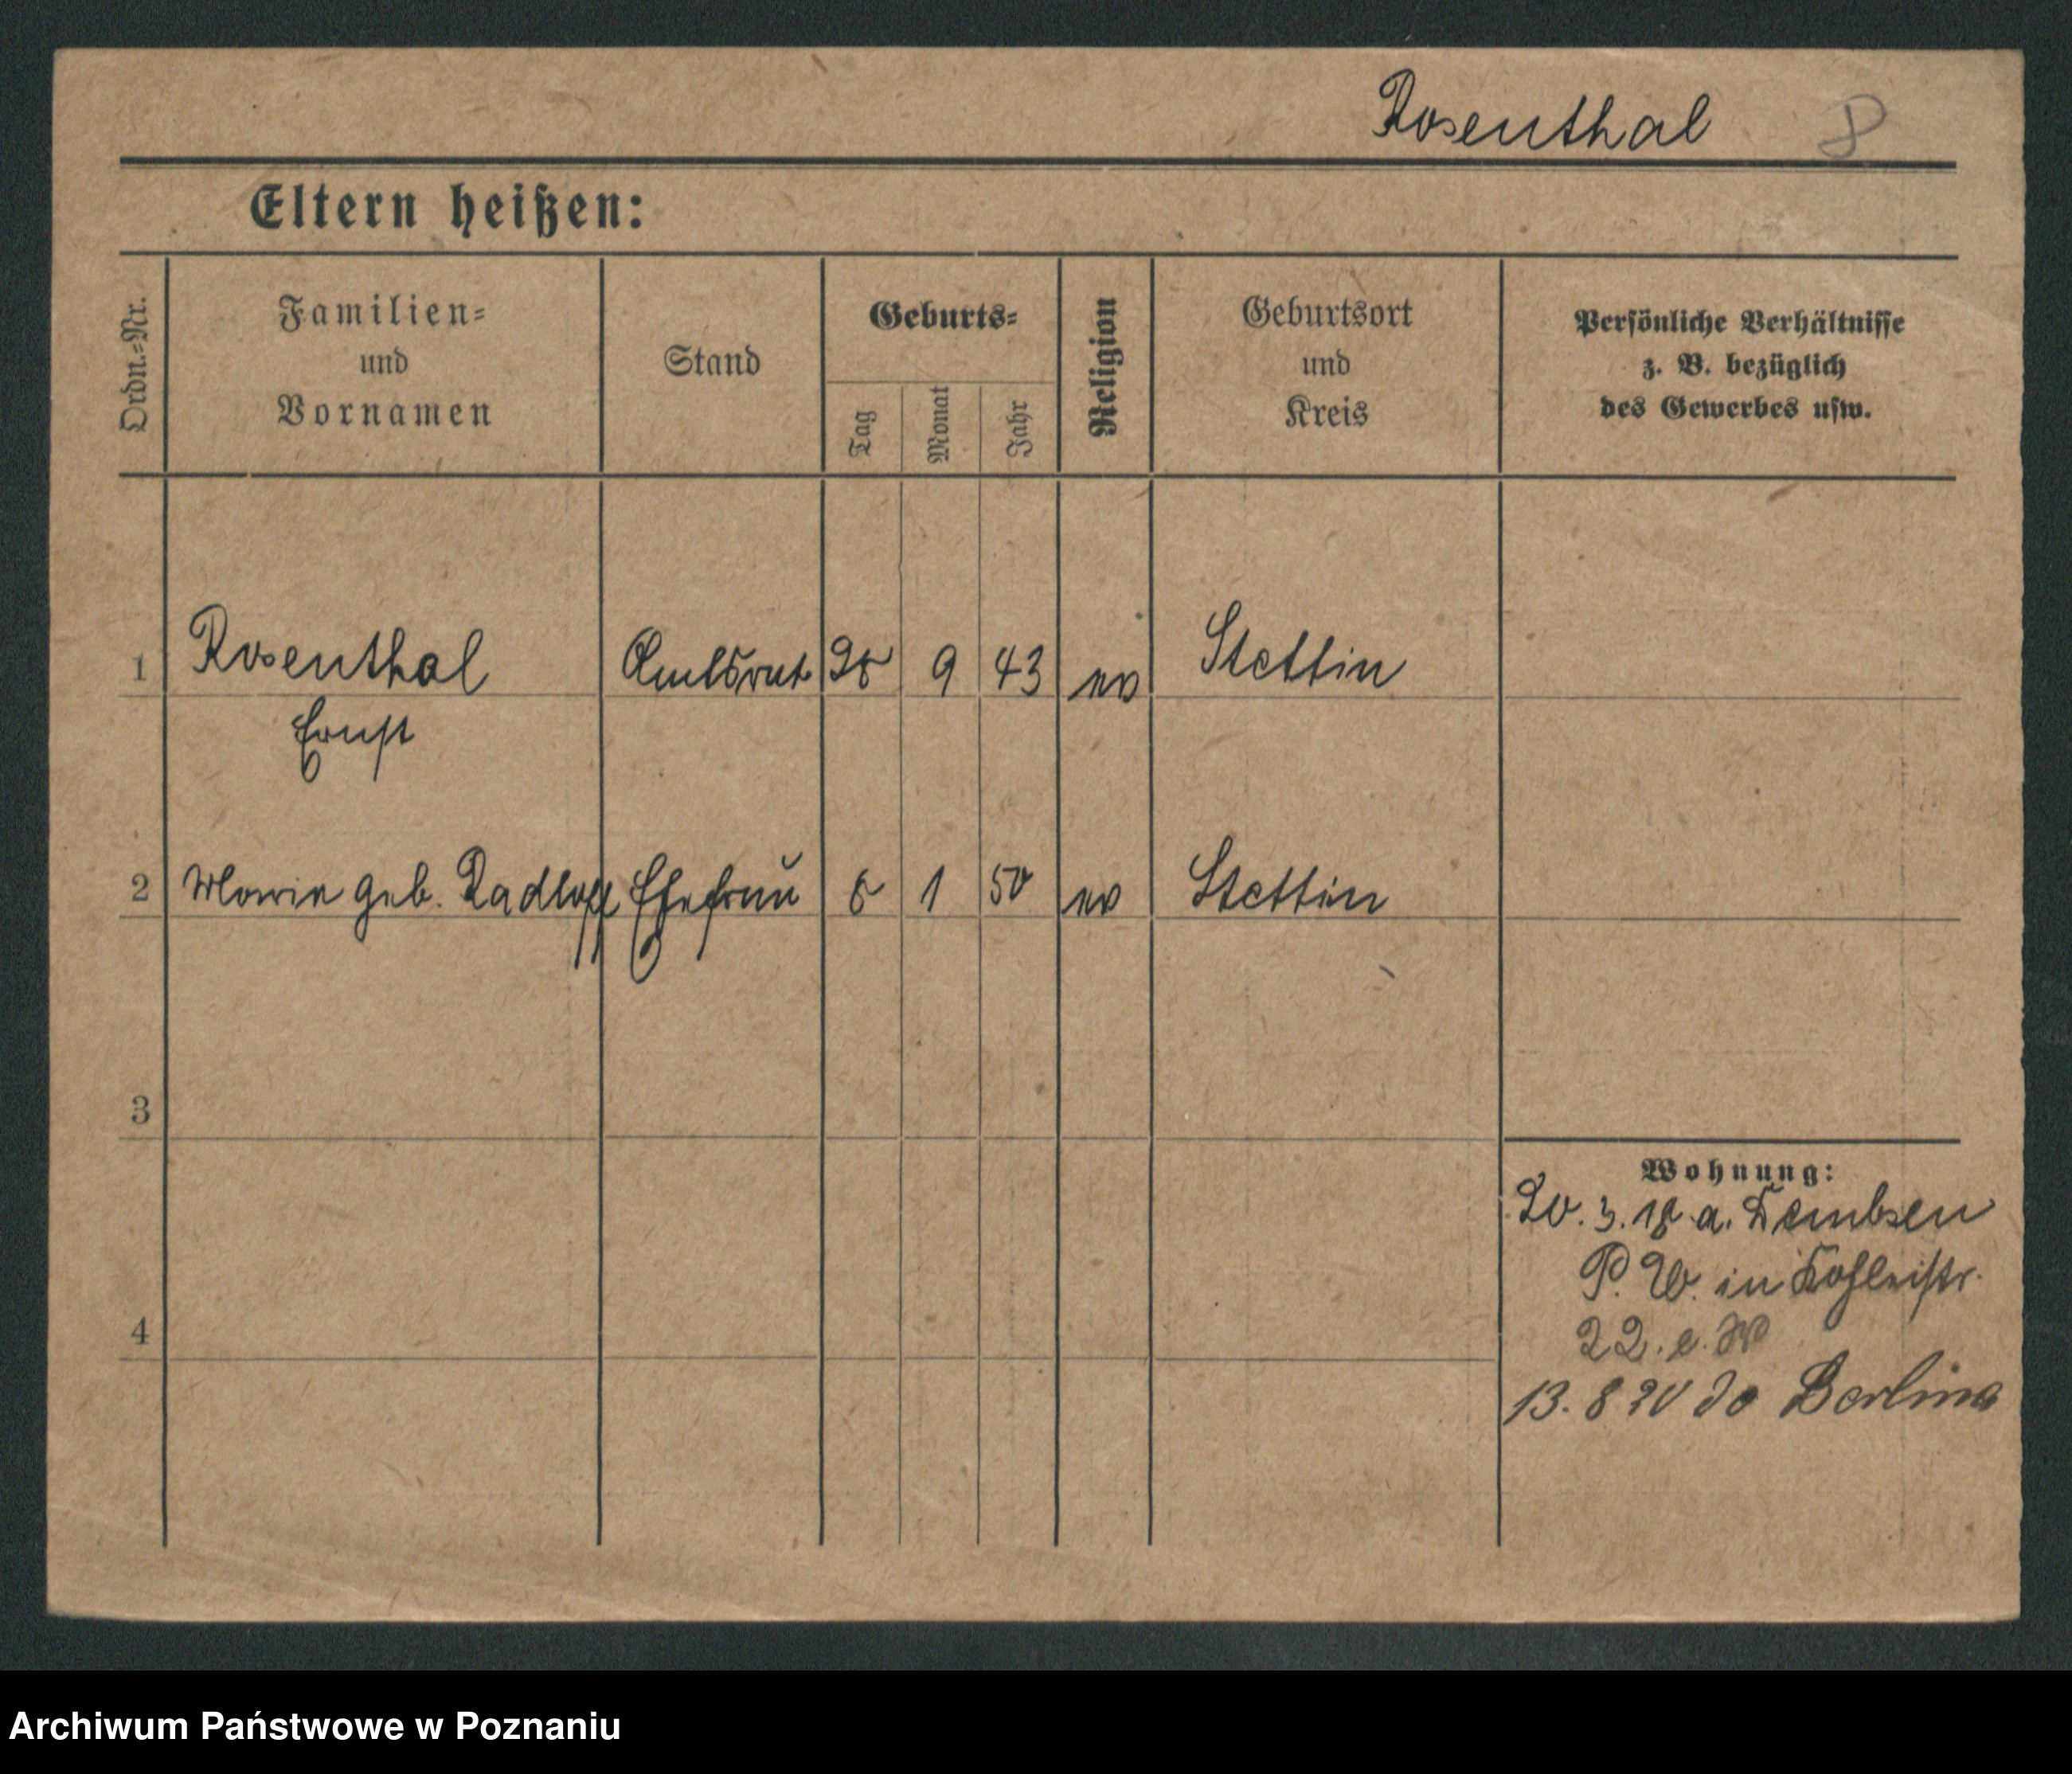 Rosenthal
Eltern heißen:
Ordn.-Nr.
Familien-
und
Vornamen
Stand
Geburts-
Tag
Monat
Jahr
Religion
Geburtsort
und
Kreis
Persönliche Verhältnisse
z. B. bezüglich
des Gewerbes usw.
1 Rosenthal Amtsrat 28 9 43 ev Stettin
Ernst
2 Marie geb. Radloff Ehefrau 8 1 50 ev Stettin
3
Wohnung:
20. 3. 18 a. Dembsen
P. W. in
4
22. e. W
13. 8 20 do Berlina
Archiwum Państwowe w Poznaniu